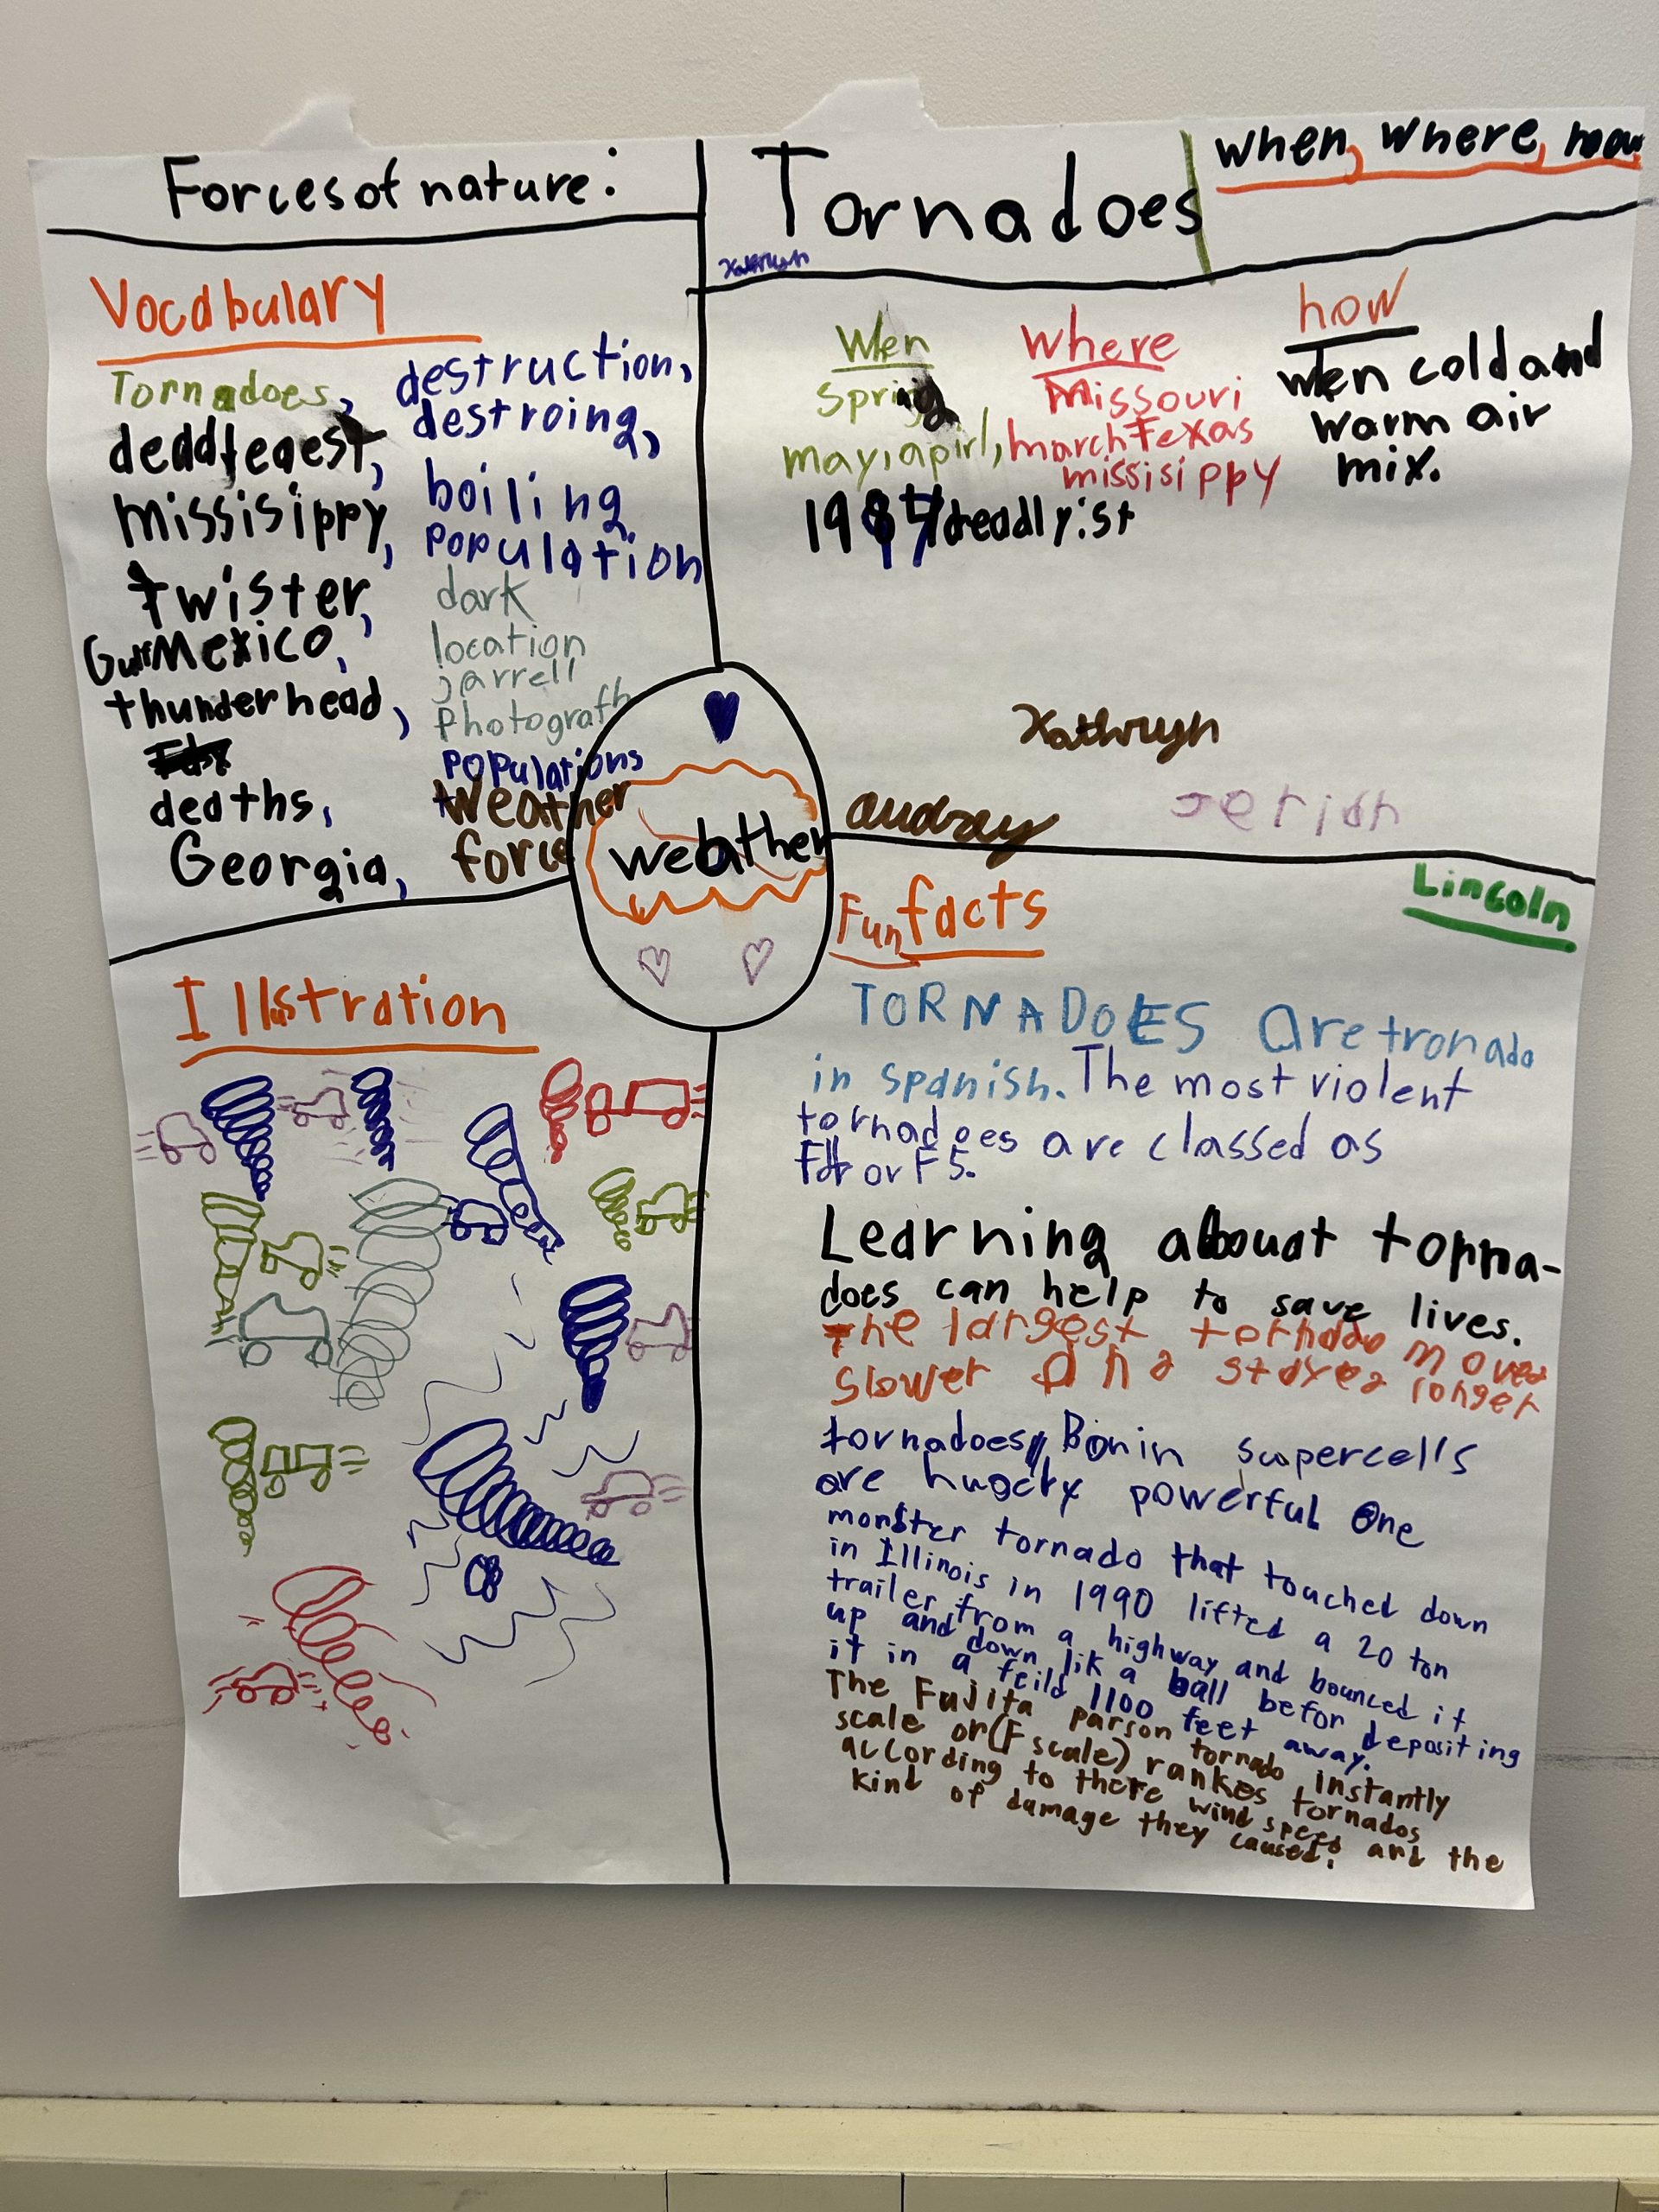 Forces of nature:
Tornadoes
when, where, how
Kathryn
Vocabulary
Tornadoes,
missisippy,
twister,
Gulf Mexico,
thunderhead,
deaths,
Georgia,
destruction,
destroing,
boiling
population
dark
location
jarrell
Photografh
populations
weather
force
Wen
spring
may, apirl, march
deadlyist
where
Missouri
Texas
missisippy
how
wen cold and
warm air
mix.
Kathryn
audray
weather
Lincoln
Fun facts
TORNADOES are tronado
in spanish. The most violent
tornadoes are classed as
F4 or F5.
Learning abouat torna-
does can help to save lives.
The largest tornado moves
slower and stayes longer
tornadoes Born in supercells
are hugely powerful One
monster tornado that touched down
in Illinois in 1990 lifted a 20 ton
trailer from a highway and bounced it
up and down lik a ball befor depositing
it in a feild 1100 feet away.
The Fujita parson tornado instantly
scale or (F scale) rankes tornados
according to there wind speed and the
kind of damage they caused.
Illstration